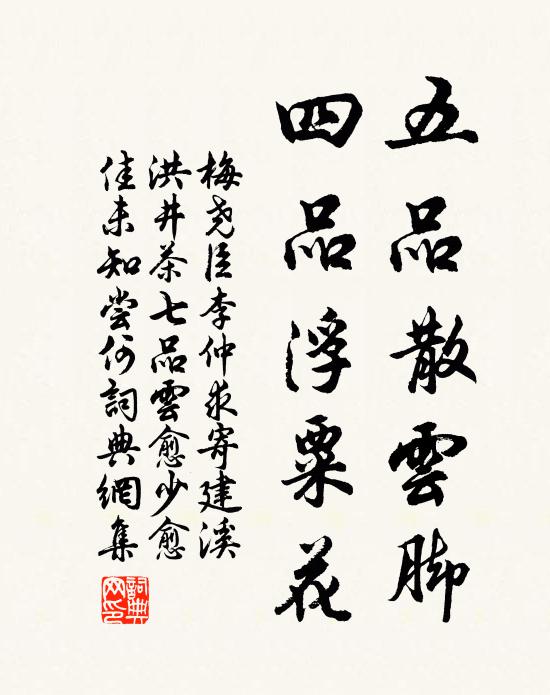 五品散雲脚
四品浮粟花
梅堯臣李仲求寄建溪
洪井茶七品雲愈少愈
佳未知嘗何詞典網集
詞典網印